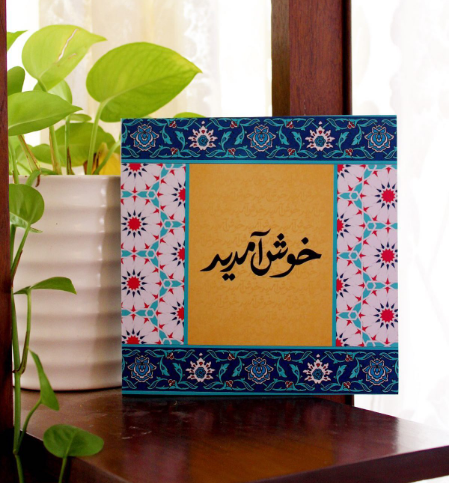 خوش آمدید